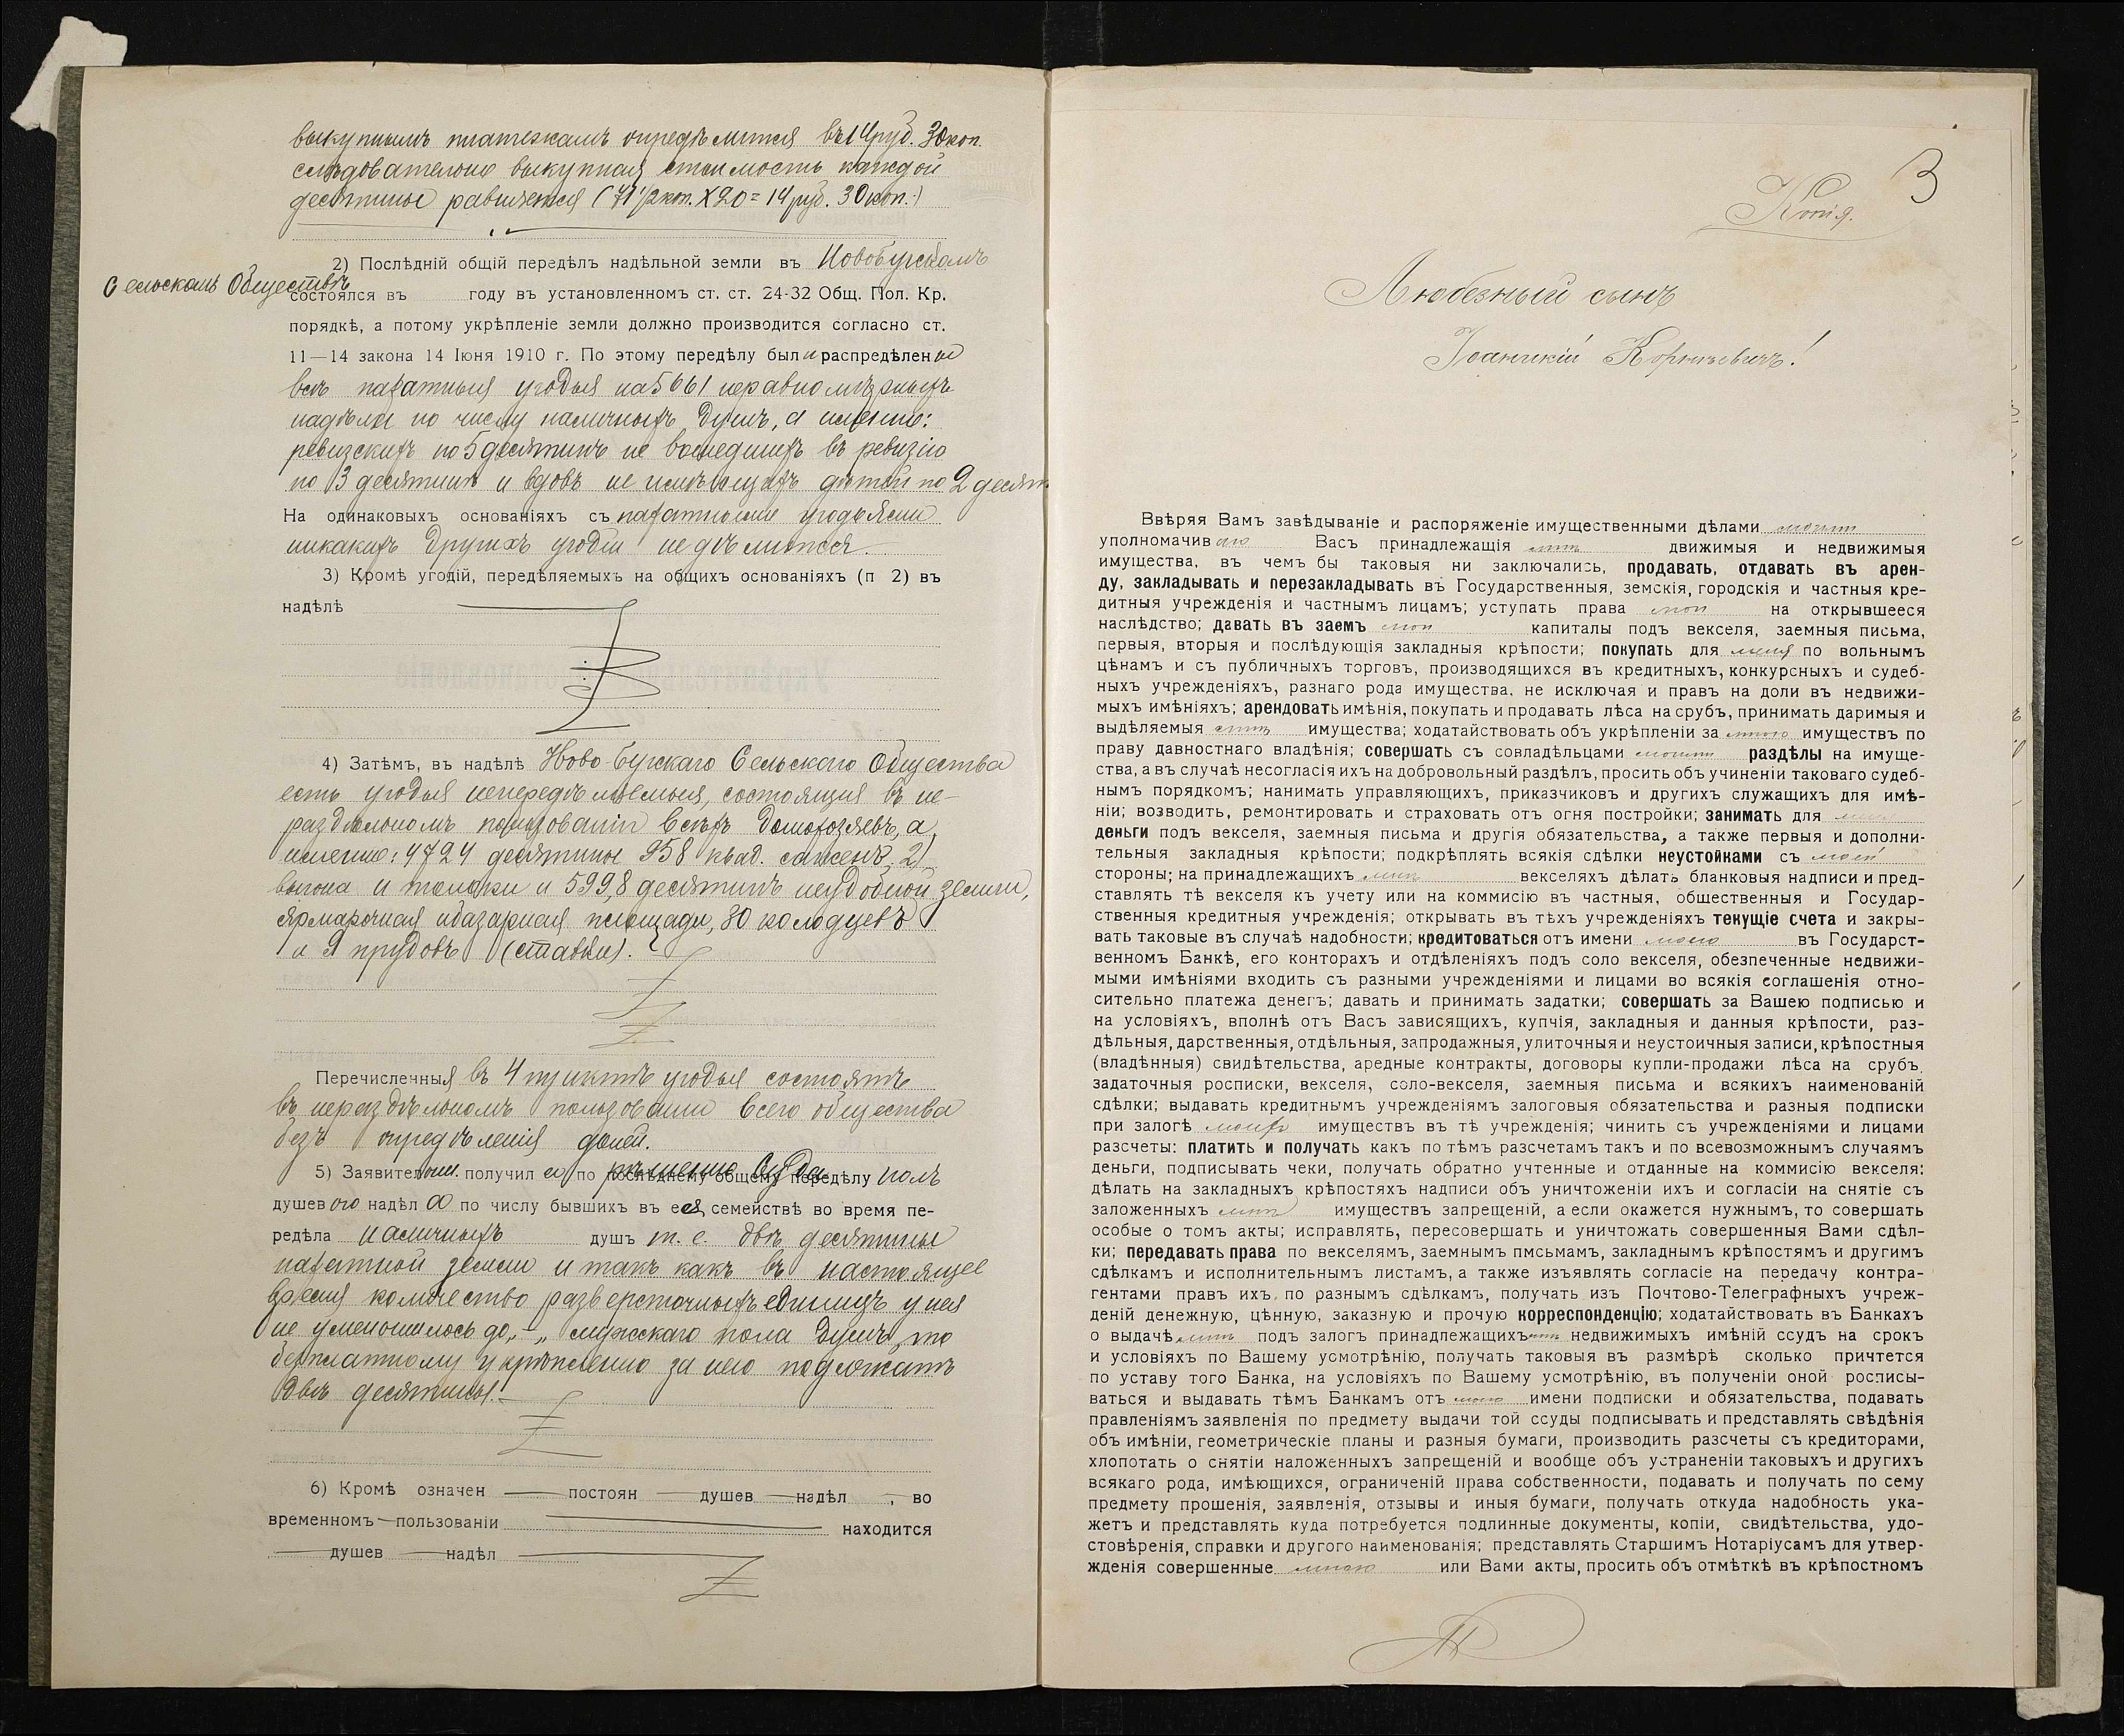 выкупнымъ платежамъ опредѣлится въ 14 руб. 30 коп.
слѣдовательно выкупная стоимость каждой
десятины равняется (71 1/2 коп. X 20 = 14 руб. 30 коп.)
2) Послѣдній общій передѣлъ надѣльной земли въ Новобугскомъ
Сельскомъ Обществѣ
состоялся въ году въ установленномъ ст. ст. 24-32 Общ. Пол. Кр.
порядкѣ, а потому укрѣпленіе земли должно производится согласно ст.
11—14 закона 14 Іюня 1910 г. По этому передѣлу были распредѣлены
всѣ пахатныя угодья на 5661 неравномѣрныхъ
надѣла по числу наличныхъ душъ, а именно:
ревизскихъ по 5 десятинъ не вошедшихъ въ ревизію
по 3 десятинѣ и вдовъ не имѣющихъ дѣтей по 2 десят
На одинаковыхъ основаніяхъ съ пахатными угодьями
никакихъ другихъ угодій не дѣлится.
3) Кромѣ угодій, передѣляемыхъ на общихъ основаніяхъ (п 2) въ
надѣлѣ
4) Затѣмъ, въ надѣлѣ Ново-Бугскаго Сельскаго Общества
есть угодья непередѣляемыя, состоящія въ не-
раздѣльномъ пользованіи всѣхъ домохозяевъ, а
именно: 4724 десятины 958 квад. сажень, 2)
выгона и толоки и 599,8 десятинъ неудобной земли,
ярмарочная и базарная площади, 80 колодцевъ
и 9 прудовъ (ставки).
Перечисленныя въ 4 пунктѣ угодья состоятъ
въ нераздѣльномъ пользованіи всего общества
безъ опредѣленія долей.
5) Заявител получил по рѣшенію Суда послѣднему общему передѣлу полъ
душевого надѣла по числу бывшихъ въ ея семействѣ во время пе-
редѣла наличныхъ душъ т. е. двѣ десятины
пахатной земли и такъ какъ въ настоящее
время количество разверсточныхъ единицъ у нея
не уменьшилось до „—„ мужского пола душъ, то
безплатному укрѣпленію за нею подлежатъ
двѣ десятины.—
6) Кромѣ означен — постоян — душев — надѣл , во
временномъ — пользованіи находится
— душев — надѣл
3
Копія.
Любезный сынъ
Іоанникій Корнѣевичъ!
Ввѣряя Вамъ завѣдываніе и распоряженіе имущественными дѣлами моими
уполномачиваю Васъ принадлежащія мнѣ движимыя и недвижимыя
имущества, въ чемъ бы таковыя ни заключались, продавать, отдавать въ арен-
ду, закладывать и перезакладывать въ Государственныя, земскія, городскія и частныя кре-
дитныя учрежденія и частнымъ лицамъ; уступать права мои на открывшееся
наслѣдство; давать въ заемъ мои капиталы подъ векселя, заемныя письма,
первыя, вторыя и послѣдующія закладныя крѣпости; покупать для меня по вольнымъ
цѣнамъ и съ публичныхъ торговъ, производящихся въ кредитныхъ, конкурсныхъ и судеб-
ныхъ учрежденіяхъ, разнаго рода имущества, не исключая и правъ на доли въ недвижи-
мыхъ имѣніяхъ; арендовать имѣнія, покупать и продавать лѣса на срубъ, принимать даримыя и
выдѣляемыя мнѣ имущества; ходатайствовать объ укрѣпленіи за мною имуществъ по
праву давностнаго владѣнія; совершать съ совладѣльцами моими раздѣлы на имуще-
ства, а въ случаѣ несогласія ихъ на добровольный раздѣлъ, просить объ учиненіи таковаго судеб-
нымъ порядкомъ; нанимать управляющихъ, приказчиковъ и другихъ служащихъ для имѣ-
ніи; возводить, ремонтировать и страховать отъ огня постройки; занимать для меня
деньги подъ векселя, заемныя письма и другія обязательства, а также первыя и дополни-
тельныя закладныя крѣпости; подкрѣплять всякія сдѣлки неустойками съ моей
стороны; на принадлежащихъ мнѣ векселяхъ дѣлать бланковыя надписи и пред-
ставлять тѣ векселя къ учету или на коммисію въ частныя, общественныя и Государ-
ственныя кредитныя учрежденія; открывать въ тѣхъ учрежденіяхъ текущіе счета и закры-
вать таковые въ случаѣ надобности; кредитоваться отъ имени моего въ Государст-
венномъ Банкѣ, его конторахъ и отдѣленіяхъ подъ соло векселя, обезпеченные недвижи-
мыми имѣніями входить съ разными учрежденіями и лицами во всякія соглашенія отно-
сительно платежа денегъ; давать и принимать задатки; совершать за Вашею подписью и
на условіяхъ, вполнѣ отъ Васъ зависящихъ, купчія, закладныя и данныя крѣпости, раз-
дѣльныя, дарственныя, отдѣльныя, запродажныя, улиточныя и неустоичныя записи, крѣпостныя
(владѣнныя) свидѣтельства, аредные контракты, договоры купли-продажи лѣса на срубъ,
задаточныя росписки, векселя, соло-векселя, заемныя письма и всякихъ наименованій
сдѣлки; выдавать кредитнымъ учрежденіямъ залоговыя обязательства и разныя подписки
при залогѣ моихъ имуществъ въ тѣ учрежденія; чинить съ учрежденіями и лицами
разсчеты: платить и получать какъ по тѣмъ разсчетамъ такъ и по всевозможнымъ случаямъ
деньги, подписывать чеки, получать обратно учтенные и отданные на коммисію векселя:
дѣлать на закладныхъ крѣпостяхъ надписи объ уничтоженіи ихъ и согласіи на снятіе съ
заложенныхъ мнѣ имуществъ запрещеній, а если окажется нужнымъ, то совершать
особые о томъ акты; исправлять, пересовершать и уничтожать совершенныя Вами сдѣл-
ки; передавать права по векселямъ, заемнымъ пмсьмамъ, закладнымъ крѣпостямъ и другимъ
сдѣлкамъ и исполнительнымъ листамъ, а также изъявлять согласіе на передачу контра-
гентами правъ ихъ по разнымъ сдѣлкамъ, получать изъ Почтово-Телеграфныхъ учреж-
деній денежную, цѣнную, заказную и прочую корреспонденцію; ходатайствовать въ Банкахъ
о выдачѣ мнѣ подъ залогъ принадлежащихъ мнѣ недвижимыхъ имѣній ссудъ на срокъ
и условіяхъ по Вашему усмотрѣнію, получать таковыя въ размѣрѣ сколько причтется
по уставу того Банка, на условіяхъ по Вашему усмотрѣнію, въ полученіи оной росписы-
ваться и выдавать тѣмъ Банкамъ отъ моего имени подписки и обязательства, подавать
правленіямъ заявленія по предмету выдачи той ссуды подписывать и представлять свѣдѣнія
объ имѣніи, геометрическіе планы и разныя бумаги, производить разсчеты съ кредиторами,
хлопотать о снятіи наложенныхъ запрещеній и вообще объ устраненіи таковыхъ и другихъ
всякаго рода, имѣющихся, ограниченій права собственности, подавать и получать по сему
предмету прошенія, заявленія, отзывы и иныя бумаги, получать откуда надобность ука-
жетъ и представлять куда потребуется подлинные документы, копіи, свидѣтельства, удо-
стовѣренія, справки и другого наименованія; представлять Старшимъ Нотаріусамъ для утвер-
жденія совершенные мною или Вами акты, просить объ отмѣткѣ въ крѣпостномъ